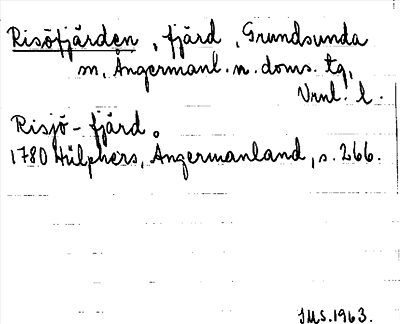 Risöfjärden, fjärd, Grundsunda
sn, Ångermanl. n. doms. tg,
Vrnl. l.
Risjö-fjärd.
1780 Hülphers, Ångermanland, s. 266.
JMS. 1963.